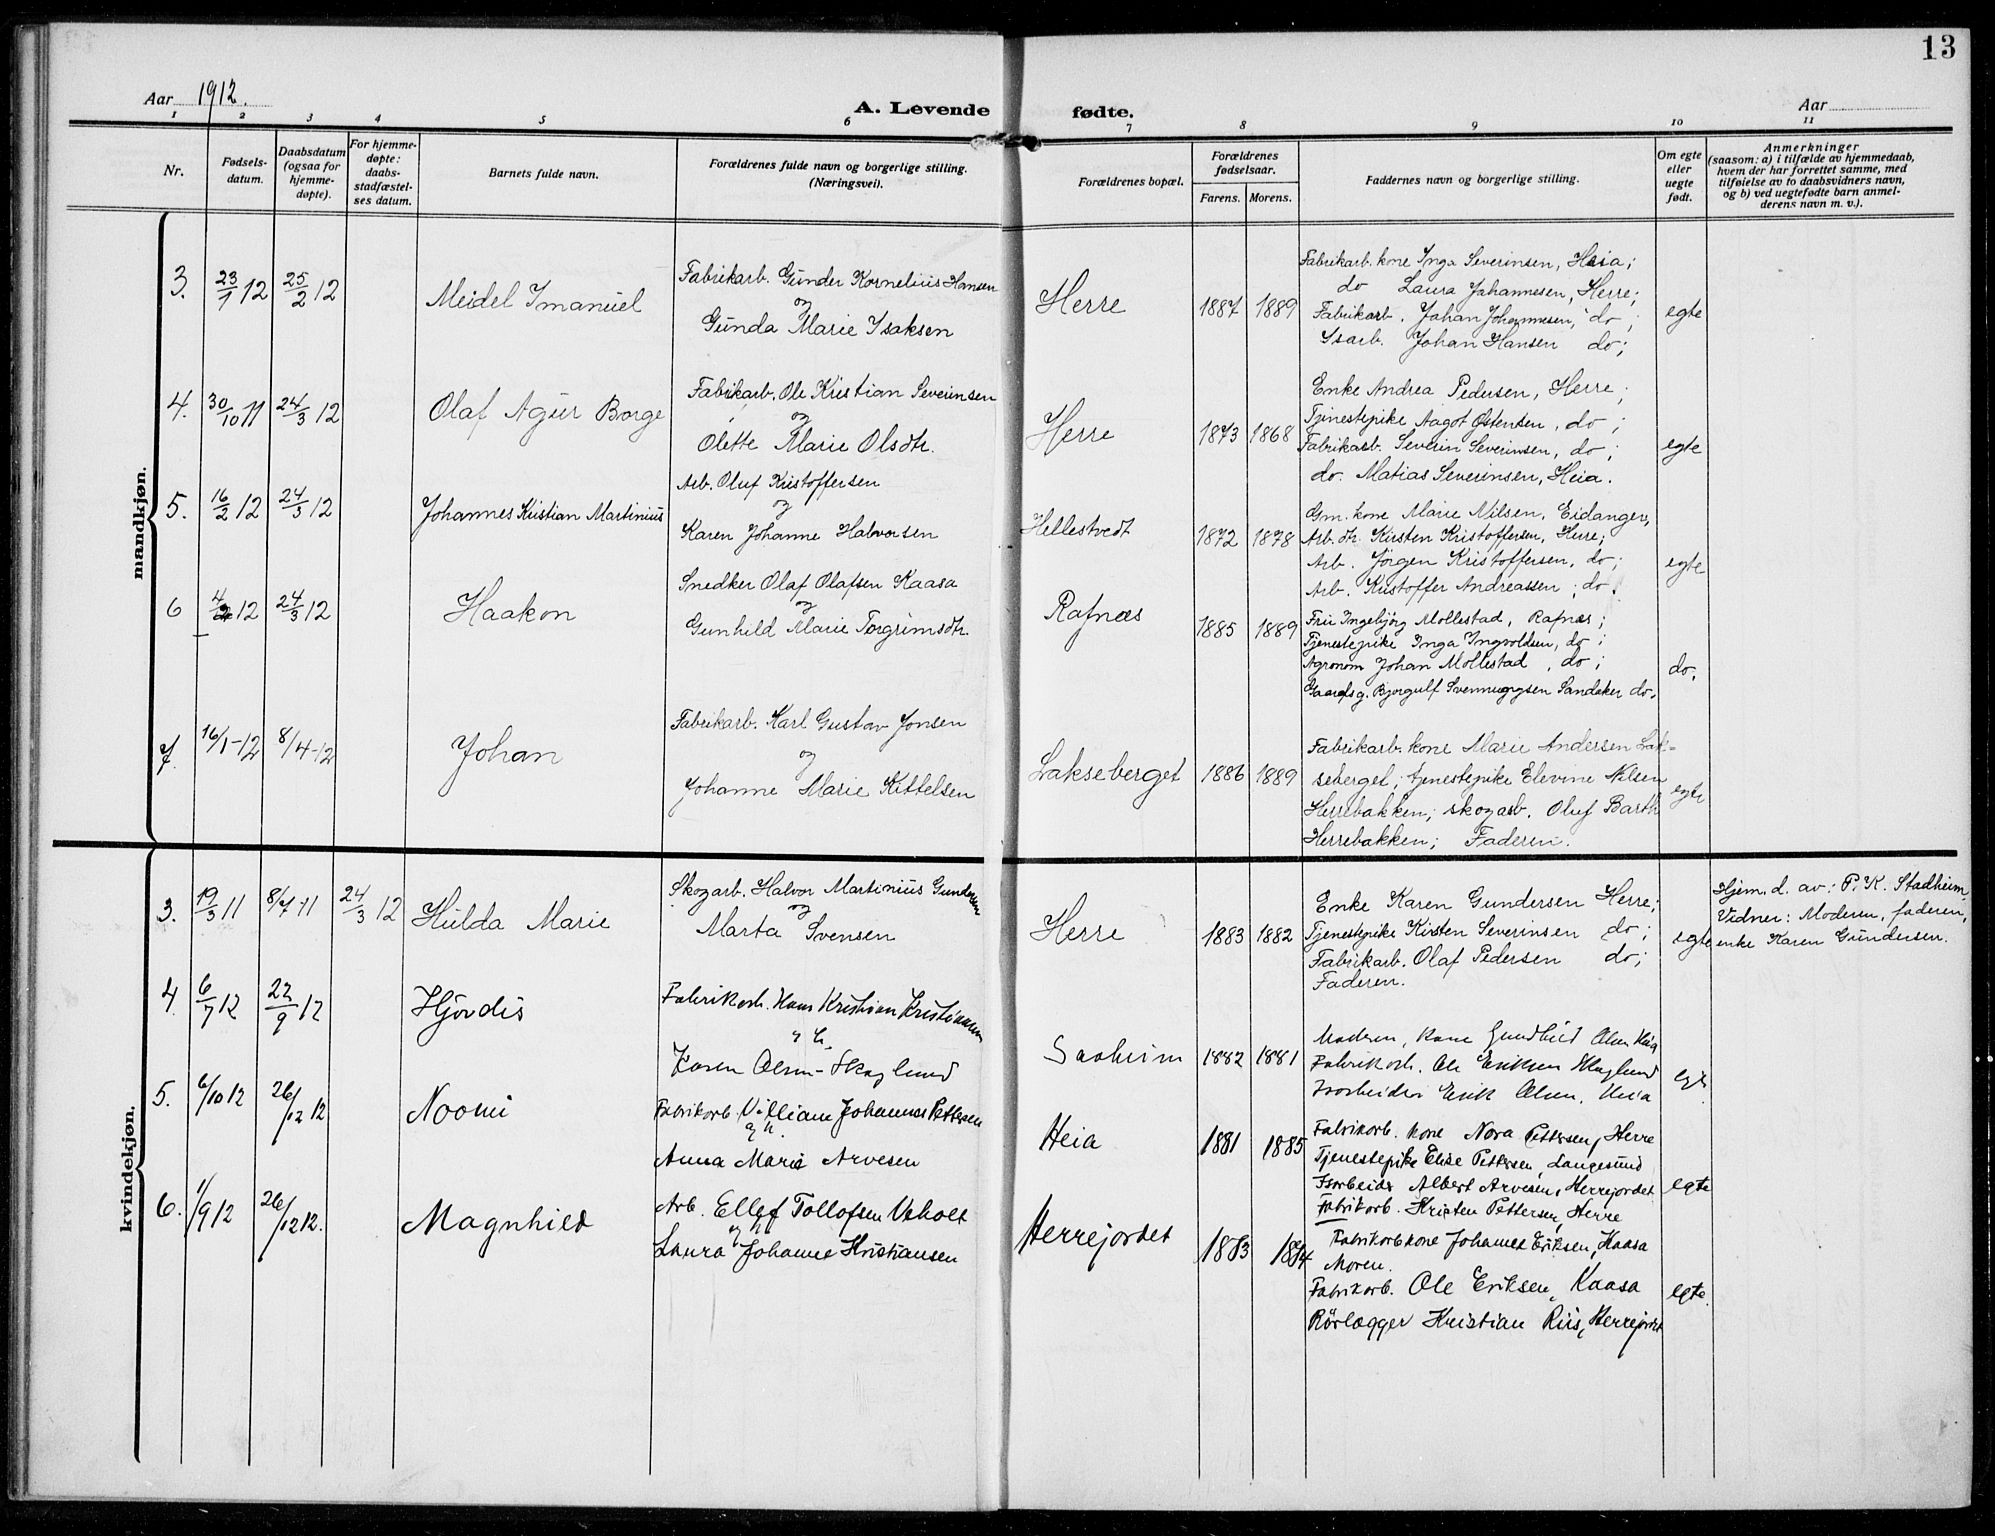 13
Aar 1912.
A. Levende fødte.
Aar
1 2 3 4 5 6 7 8 9 10 11
Nr.
Fødsels-
datum.
Daabsdatum
(ogsaa for
hjemme-
døpte).
For hjemme-
døpte:
daabs-
stadfæstel-
ses datum.
Barnets fulde navn.
Forældrenes fulde navn og borgerlige stilling.
(Næringsvei).
Forældrenes bopæl.
Forældrenes
fødselsaar.
Farens. Morens.
Faddernes navn og borgerlige stilling.
Om egte
eller
uegte
født.
Anmerkninger
(saasom: a) i tilfælde av hjemmedaab,
hvem der har forrettet samme, med
tilføielse av to daabsvidners navn,
og b) ved uegtefødte barn anmel-
derens navn m. v.).
mandkjøn.
3. 23/1 12 25/2 12 Meidel Imanuel
Fabrikarb. Gunder Kornelius Hansen
og
Gunda Marie Isaksen
Herre 1887 1889
Fabrikarb. kone Inga Severinsen, Heia;
do Laura Johannesen, Herre;
Fabrikarb. Johan Johannesen, do;
Isarb. Johan Hansen do;
egte
4. 30/10 11 24/3 12 Olaf Agur Borge
Fabrikarb. Ole Kristian Severinsen
og
Olette Marie Olsdtr.
Herre 1873 1868
Enke Andrea Pedersen, Herre;
Tjenestepike Aagot Østensen, do;
Fabrikarb. Severin Severinsen, do;
do. Matias Severinsen, Heia.
egte
5. 16/2 12 24/3 12 Johannes Kristian Martinius
Arb. Oluf Kristoffersen
og
Karen Johanne Halvorsen
Hellestvedt 1872 1878
Gm. kone Marie Nilsen, Eidanger,
Arb. dtr. Kirsten Kristoffersen, Herre;
Arb. Jörgen Kristoffersen, do;
Arb. Kristoffer Andreassen; do.
egte
6 12 24/3 12 Haakon
Snedker Olaf Olafsen Kaasa
og
Gunhild Marie Torgrimsdtr.
Rafnæs 1885 1889
Fru Ingebjörg Mollestad, Rafnæs;
Tjenestepike Inga Ingvoldsen, do;
Agronom Johan Mollestad, do;
Gaardsg. Bjorgulf Sandaker do.
do.
7. 16/1-12 8/4-12 Johan
Fabrikarb. Karl Gustav Jonsen
og
Johanne Marie Kittelsen
Lakseberget 1886 1889
Fabrikarb. kone Marie Andersen Lak-
seberget; tjenestepike Elevine Nilsen
Herrebakken; skogarb. Oluf Barth
Herrebakken; Faderen.
egte
kvindekjøn.
3. 19/3 11 8/7-11 24/3 12 Hulda Marie
Skogarb. Halvor Martinius Gundersen
og
Marta Svensen
Herre 1883 1882
Enke Karen Gundersen Herre;
Tjenestepike Kirsten Severinsen do;
Fabrikarb. Olaf Pedersen do;
Faderen.
egte
Hjem. d. av: P. K. Stadheim,
Vidner: Moderen, faderen,
enke Karen Gundersen.
4 6/7 12 22/9 12 Hjördis
Fabrikarb. Hans Kristian Kristiansen
og h.
Karen Olsen Skoglund
Saaheim 1882 1881
Moderen, kone Gundhild Olsen Heia
Fabrikarb. Ole Eriksen Skoglund
Isarbeider Erik Olsen, Heia
egte
5. 6/10 12 26/12 12 Noomi
Fabrikarb. Villiam Johannes Pettersen
og h.
Anna Marie Arvesen
Heia 1881 1885
Fabrikarb. kone Nora Pettersen, Herre
Tjenestepike Elise Pettersen, Langesund
Isarbeider Albert Arvesen, Herrejordet
Fabrikarb. Kristen Pettersen, Herre
egte
6. 1/9 12 26/12 12. Magnhild
Arb. Ellef Tollofsen Veholt
og h.
Laura Johanne Kristiansen
Herrejordet 1883
Fabrikarb kone Johanne Eriksen, Kaasa
Moren.
Fabrikarb. Ole Eriksen, Kaasa
Rörlægger Kristian Riis, Herrejordet
egte.